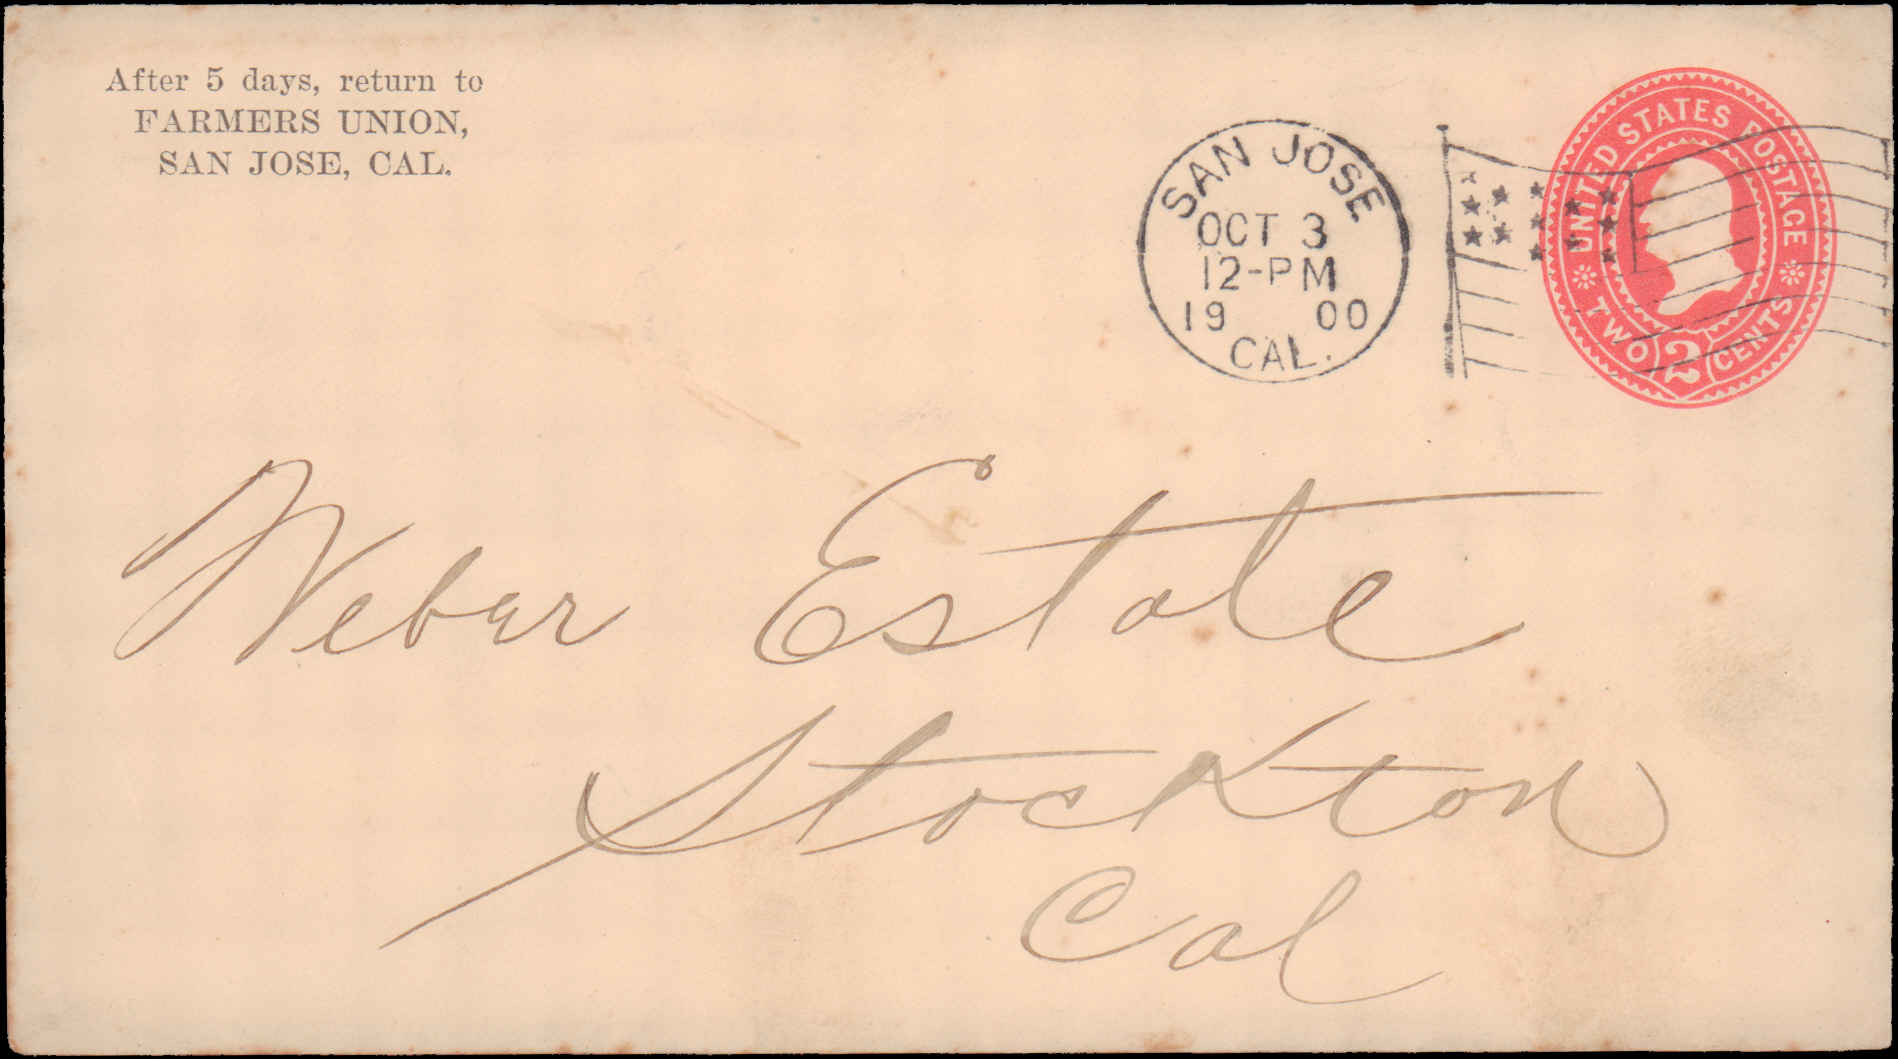 After 5 days, return to
FARMERS UNION,
SAN JOSE, CAL.
SAN JOSE
OCT 3
12-PM
19 00
CAL.
UNITED STATES POSTAGE
TWO 2 CENTS
Weber Estate
Stockton
Cal